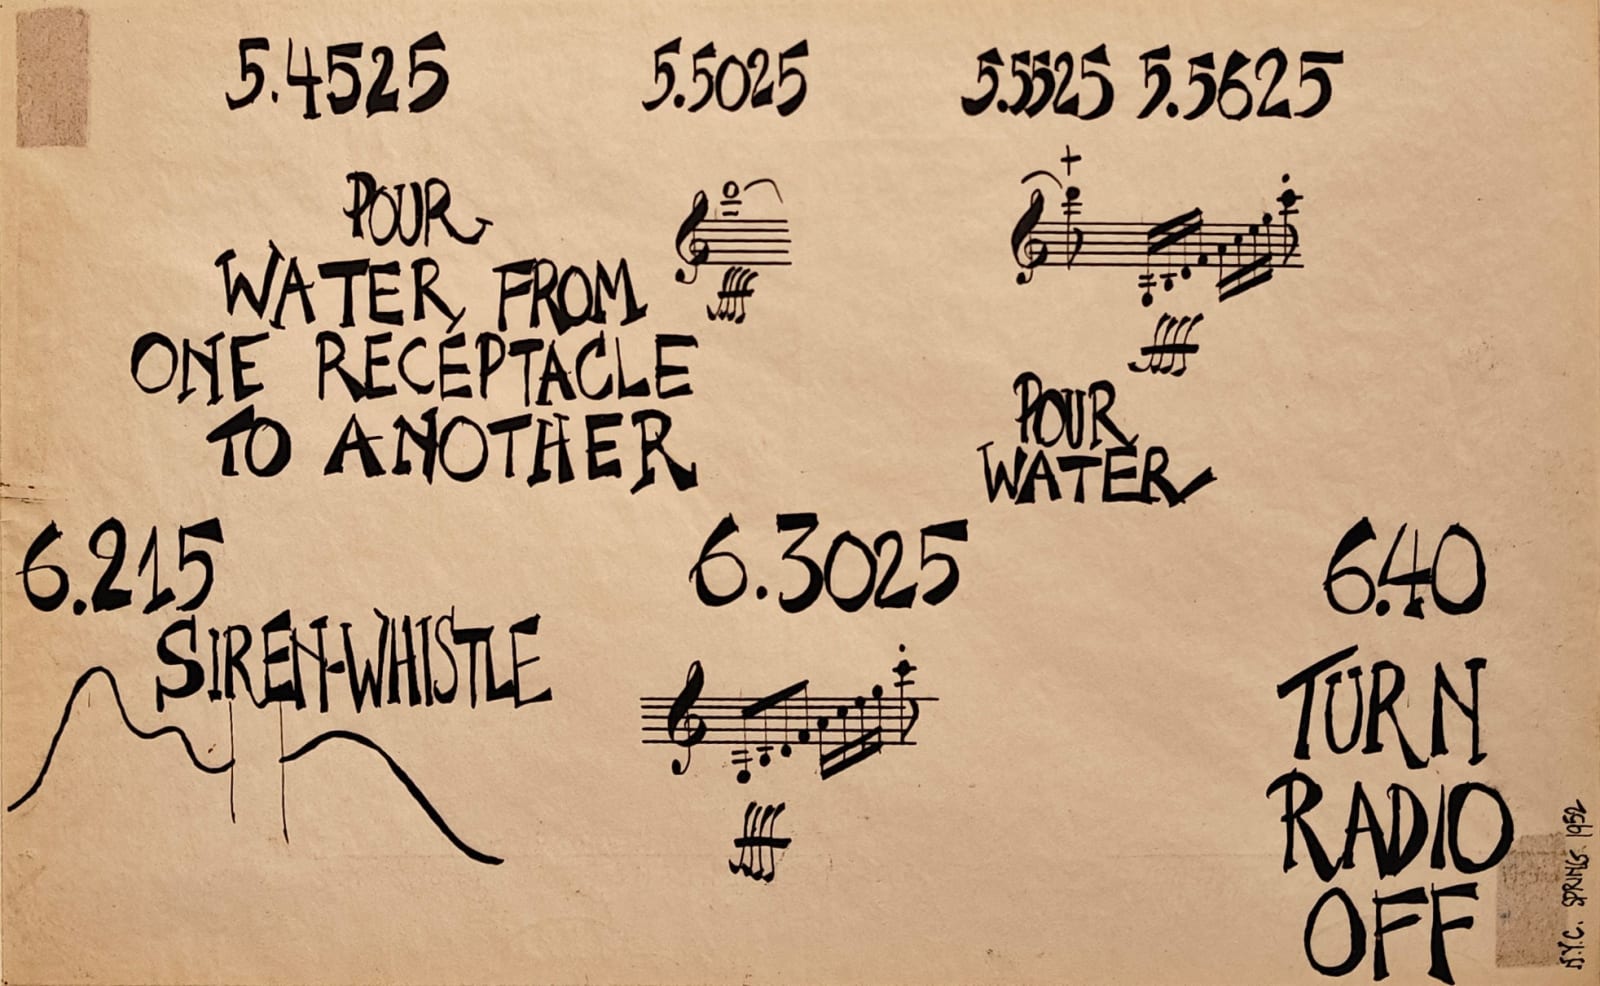 5.4525 5.5025 5.5525 5.5625
POUR
WATER FROM
ONE RECEPTACLE
TO ANOTHER
POUR
WATER
6.215 6.3025 6.40
SIREN-WHISTLE
TURN
RADIO
OFF
N.Y.C. SPRING 1952